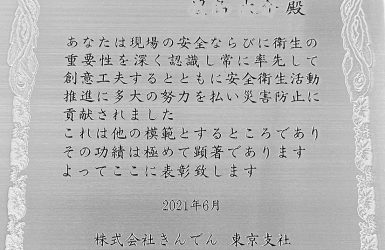 殿
あなたは現場の安全ならびに衛生の
重要性を深く認識し常に率先して
創意工夫するとともに安全衛生活動
推進に多大の努力を払い災害防止に
貢献されました
これは他の模範とするところであり
その功績は極めて顕著であります
よってここに表彰致します
2021年6月
株式会社きんでん 東京支社